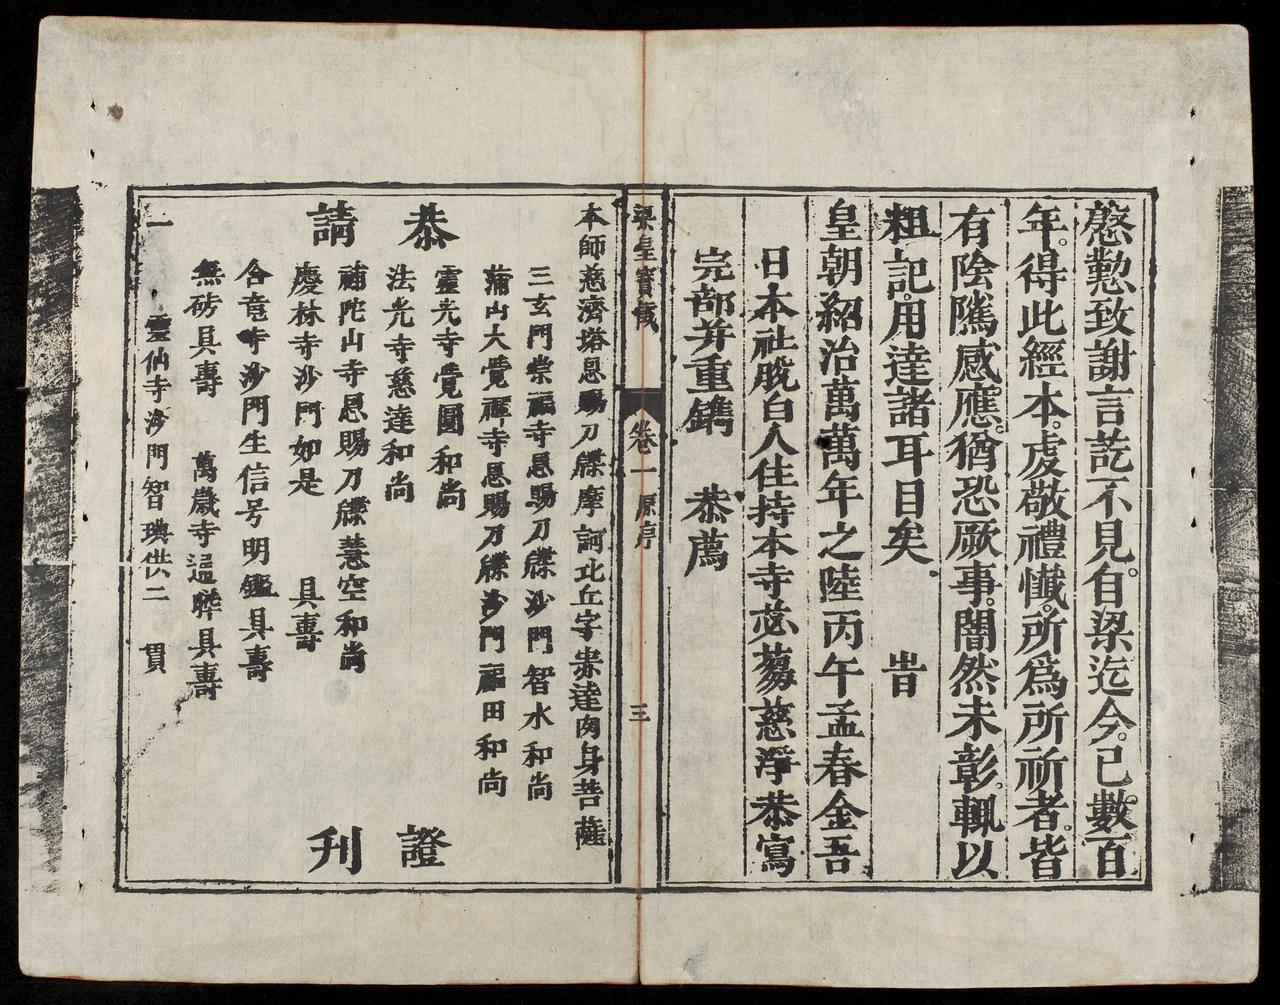 慇懃致謝言訖不見。自梁迄今。已數百
年。得此經本。虔敬禮懺。所爲所祈者。皆
有陰隲感應。猶恐厥事。闇然未彰。輒以
粗記。用達諸耳目矣。 旹
皇朝紹治萬萬年之陸丙午孟春金吾
日本社脫白人住持本寺苾蒭慈淨恭寫
完部并重鐫 恭薦
梁皇寶懺 卷一 原序 三
本師慈濟塔恩賜刀牒摩訶比丘字崇達肉身菩薩
三玄門崇福寺恩賜刀牒沙門智水和尚
蒲山大覺禪寺恩賜刀牒沙門福田和尚
恭 靈光寺覺圓和尚 證
法光寺慈達和尚
請 補陀山寺恩賜刀牒慧空和尚 刊
慶林寺沙門如是 具壽
含竜寺沙門生信号明鑑具壽
無礙具壽 萬歲寺 具壽
一 靈仙寺沙門智 供二 貫